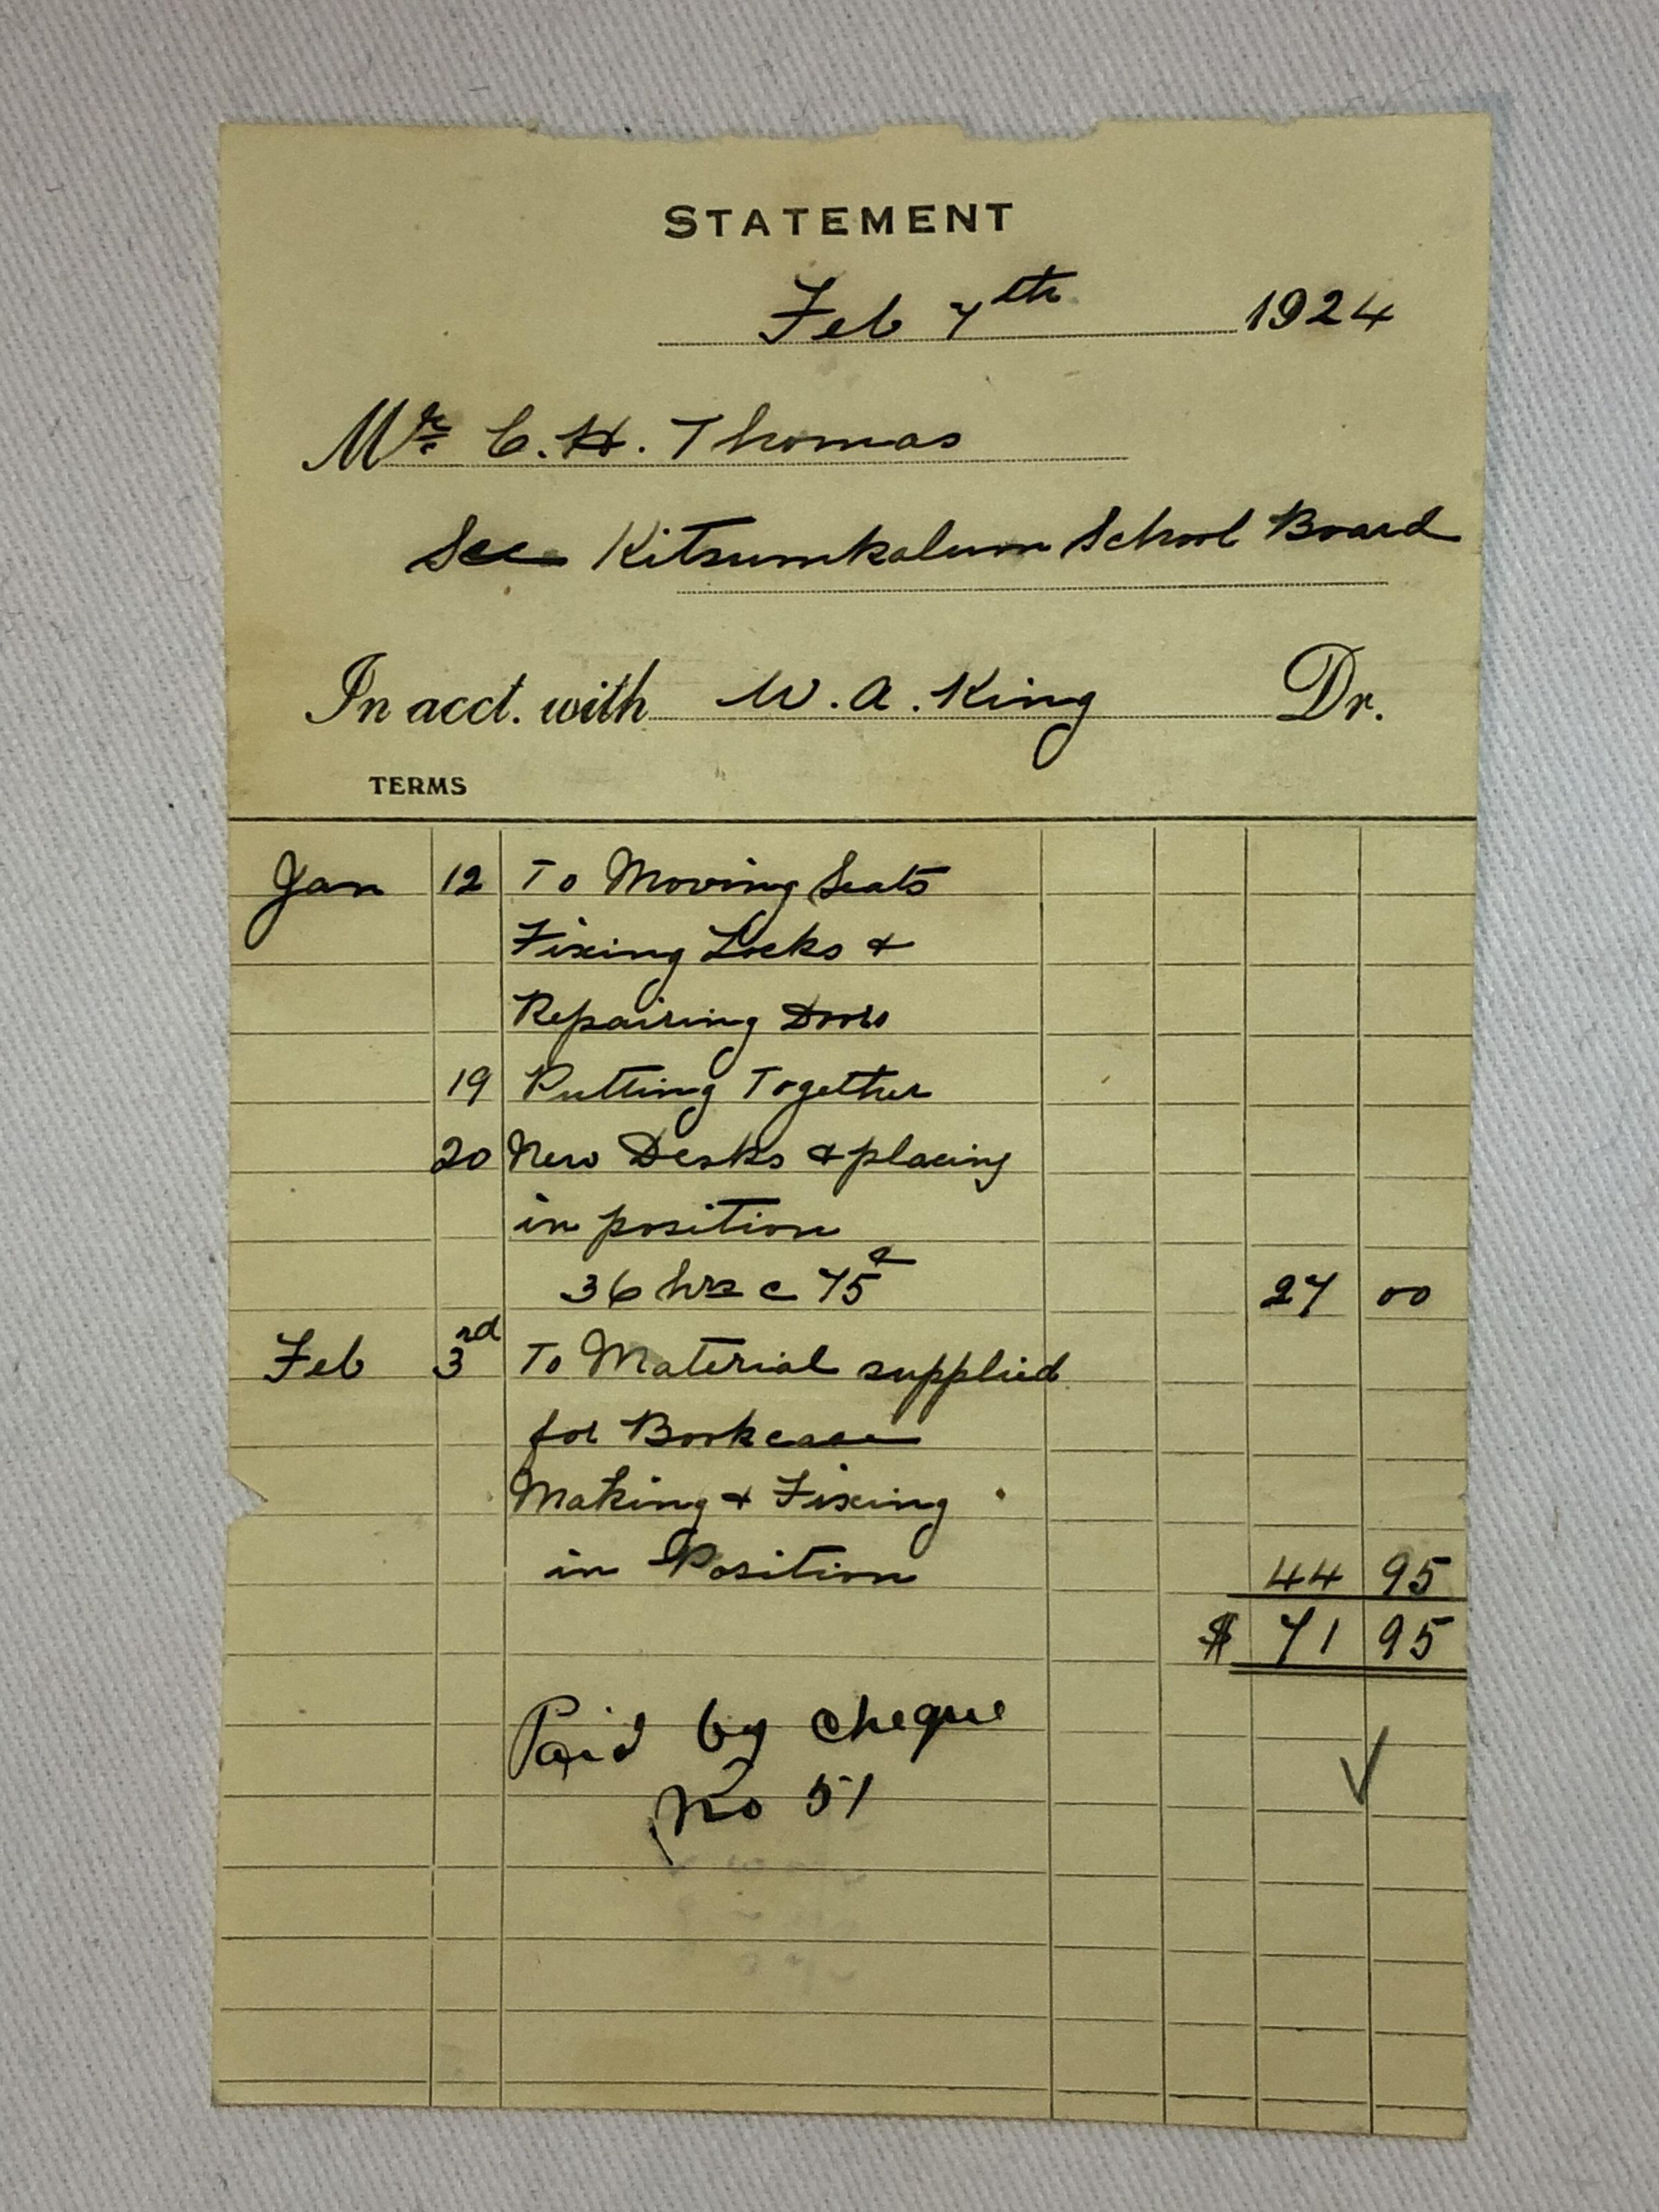 STATEMENT
Feb 7th 1924
Mr C. H. Thomas
Sec Kitsumkalum School Board
In acct. with W. A. King Dr.
TERMS
Jan 12 To Moving Seats
Fixing Locks &
Repairing Doors
19 Putting Together
20 New Desks & placing
in position
36 hrs @ 75¢ 27 00
Feb 3rd To Material supplied
for Bookcase
Making & Fixing
in Position 44 95
$ 71 95
Paid by cheque
No 51